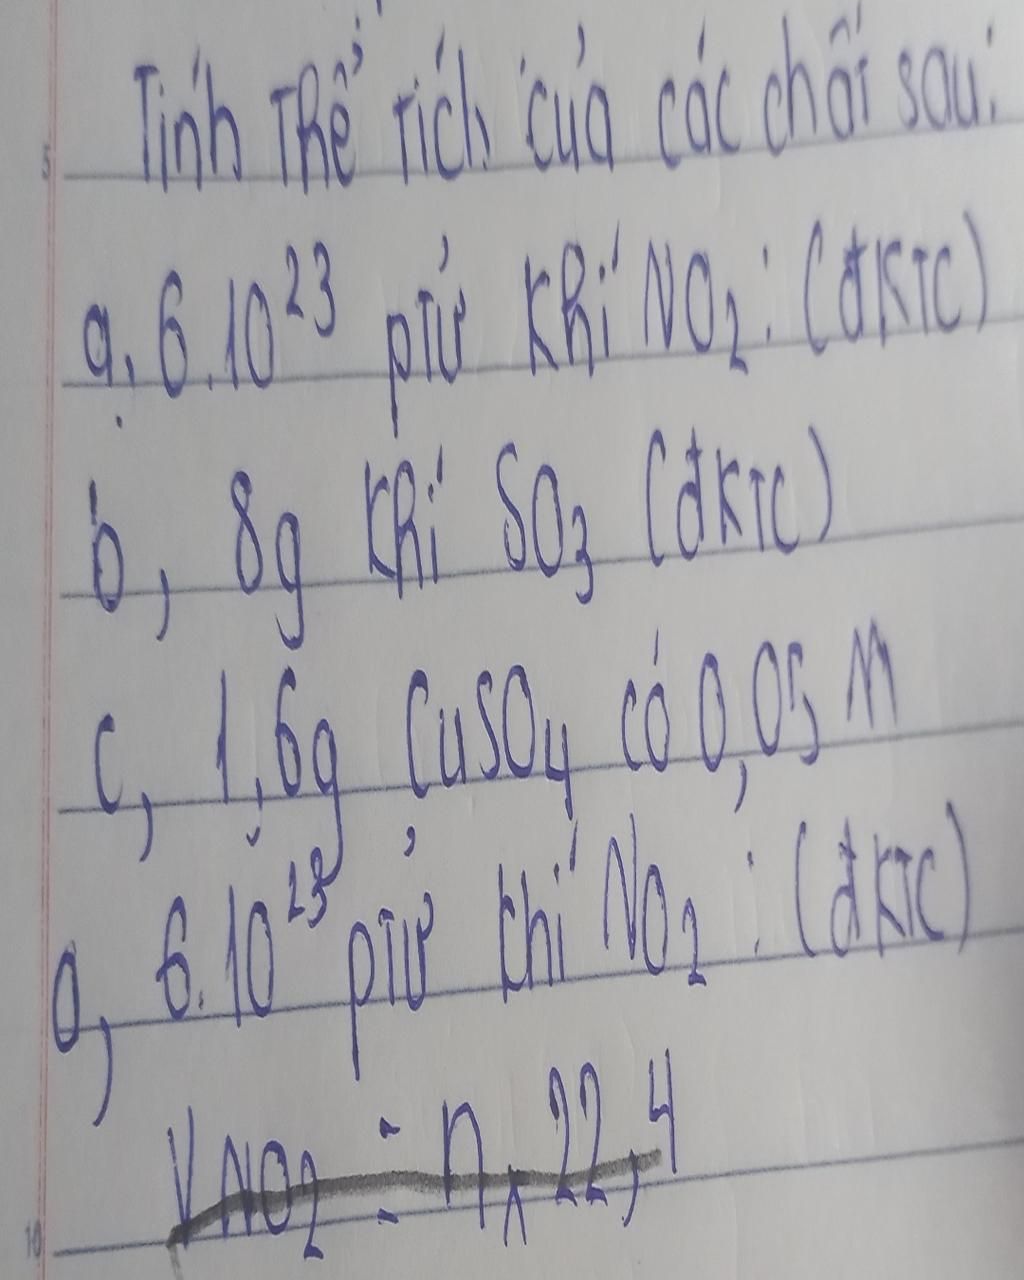 Tính Thể tích của các chất sau:
a, 6.10²³ ptử khí NO₂: (đKTC)
b, 8g khí SO₃ (đKTC)
c, 1,6g CuSO₄ có 0,05 M
a, 6.10²³ ptử khí NO₂: (đKTC)
V NO₂ = n x 22,4
5
10